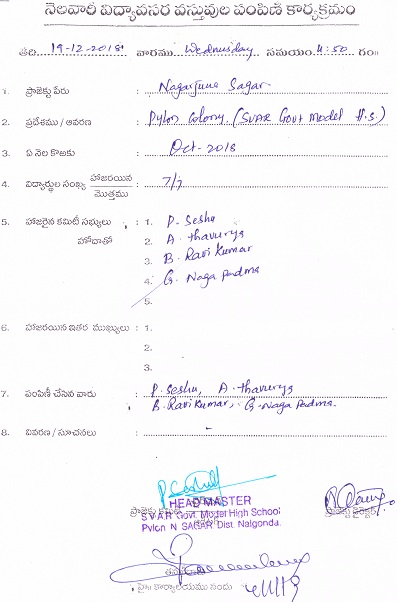 నెలవారీ విద్యావసర వస్తువుల పంపిణీ కార్యక్రమం
తేది. 19-12-2018 వారము Wednusday సమయం. 4:50 గం॥
1. ప్రాజెక్టు పేరు : Nagarjuna Sagar
2. ప్రదేశము / ఆవరణ : Pylon Colony (SVAR Govt Model H.S.)
3. ఏ నెల కొఱకు : Oct-2018
4. విద్యార్థుల సంఖ్య హాజరయిన / మొత్తము : 7/7
5. హాజరైన కమిటీ సభ్యులు : 1. P. Seshu
హోదాతో 2. A. thavurya
3. B. Ravi Kumar
4. G. Naga padma
5.
6. హాజరయిన ఇతర ముఖ్యులు : 1.
2.
3.
7. పంపిణీ చేసిన వారు : P. Seshu, A. thavurya
B. Ravi Kumar, G. Naga Padma.
8. వివరణ / సూచనలు : -
HEAD MASTER
S.V.A.R. Govt. Model High School
Pylon N. SAGAR Dist. Nalgonda.
ప్రాజెక్టు డైరెక్టర్
హైః కార్యాలయము నందు